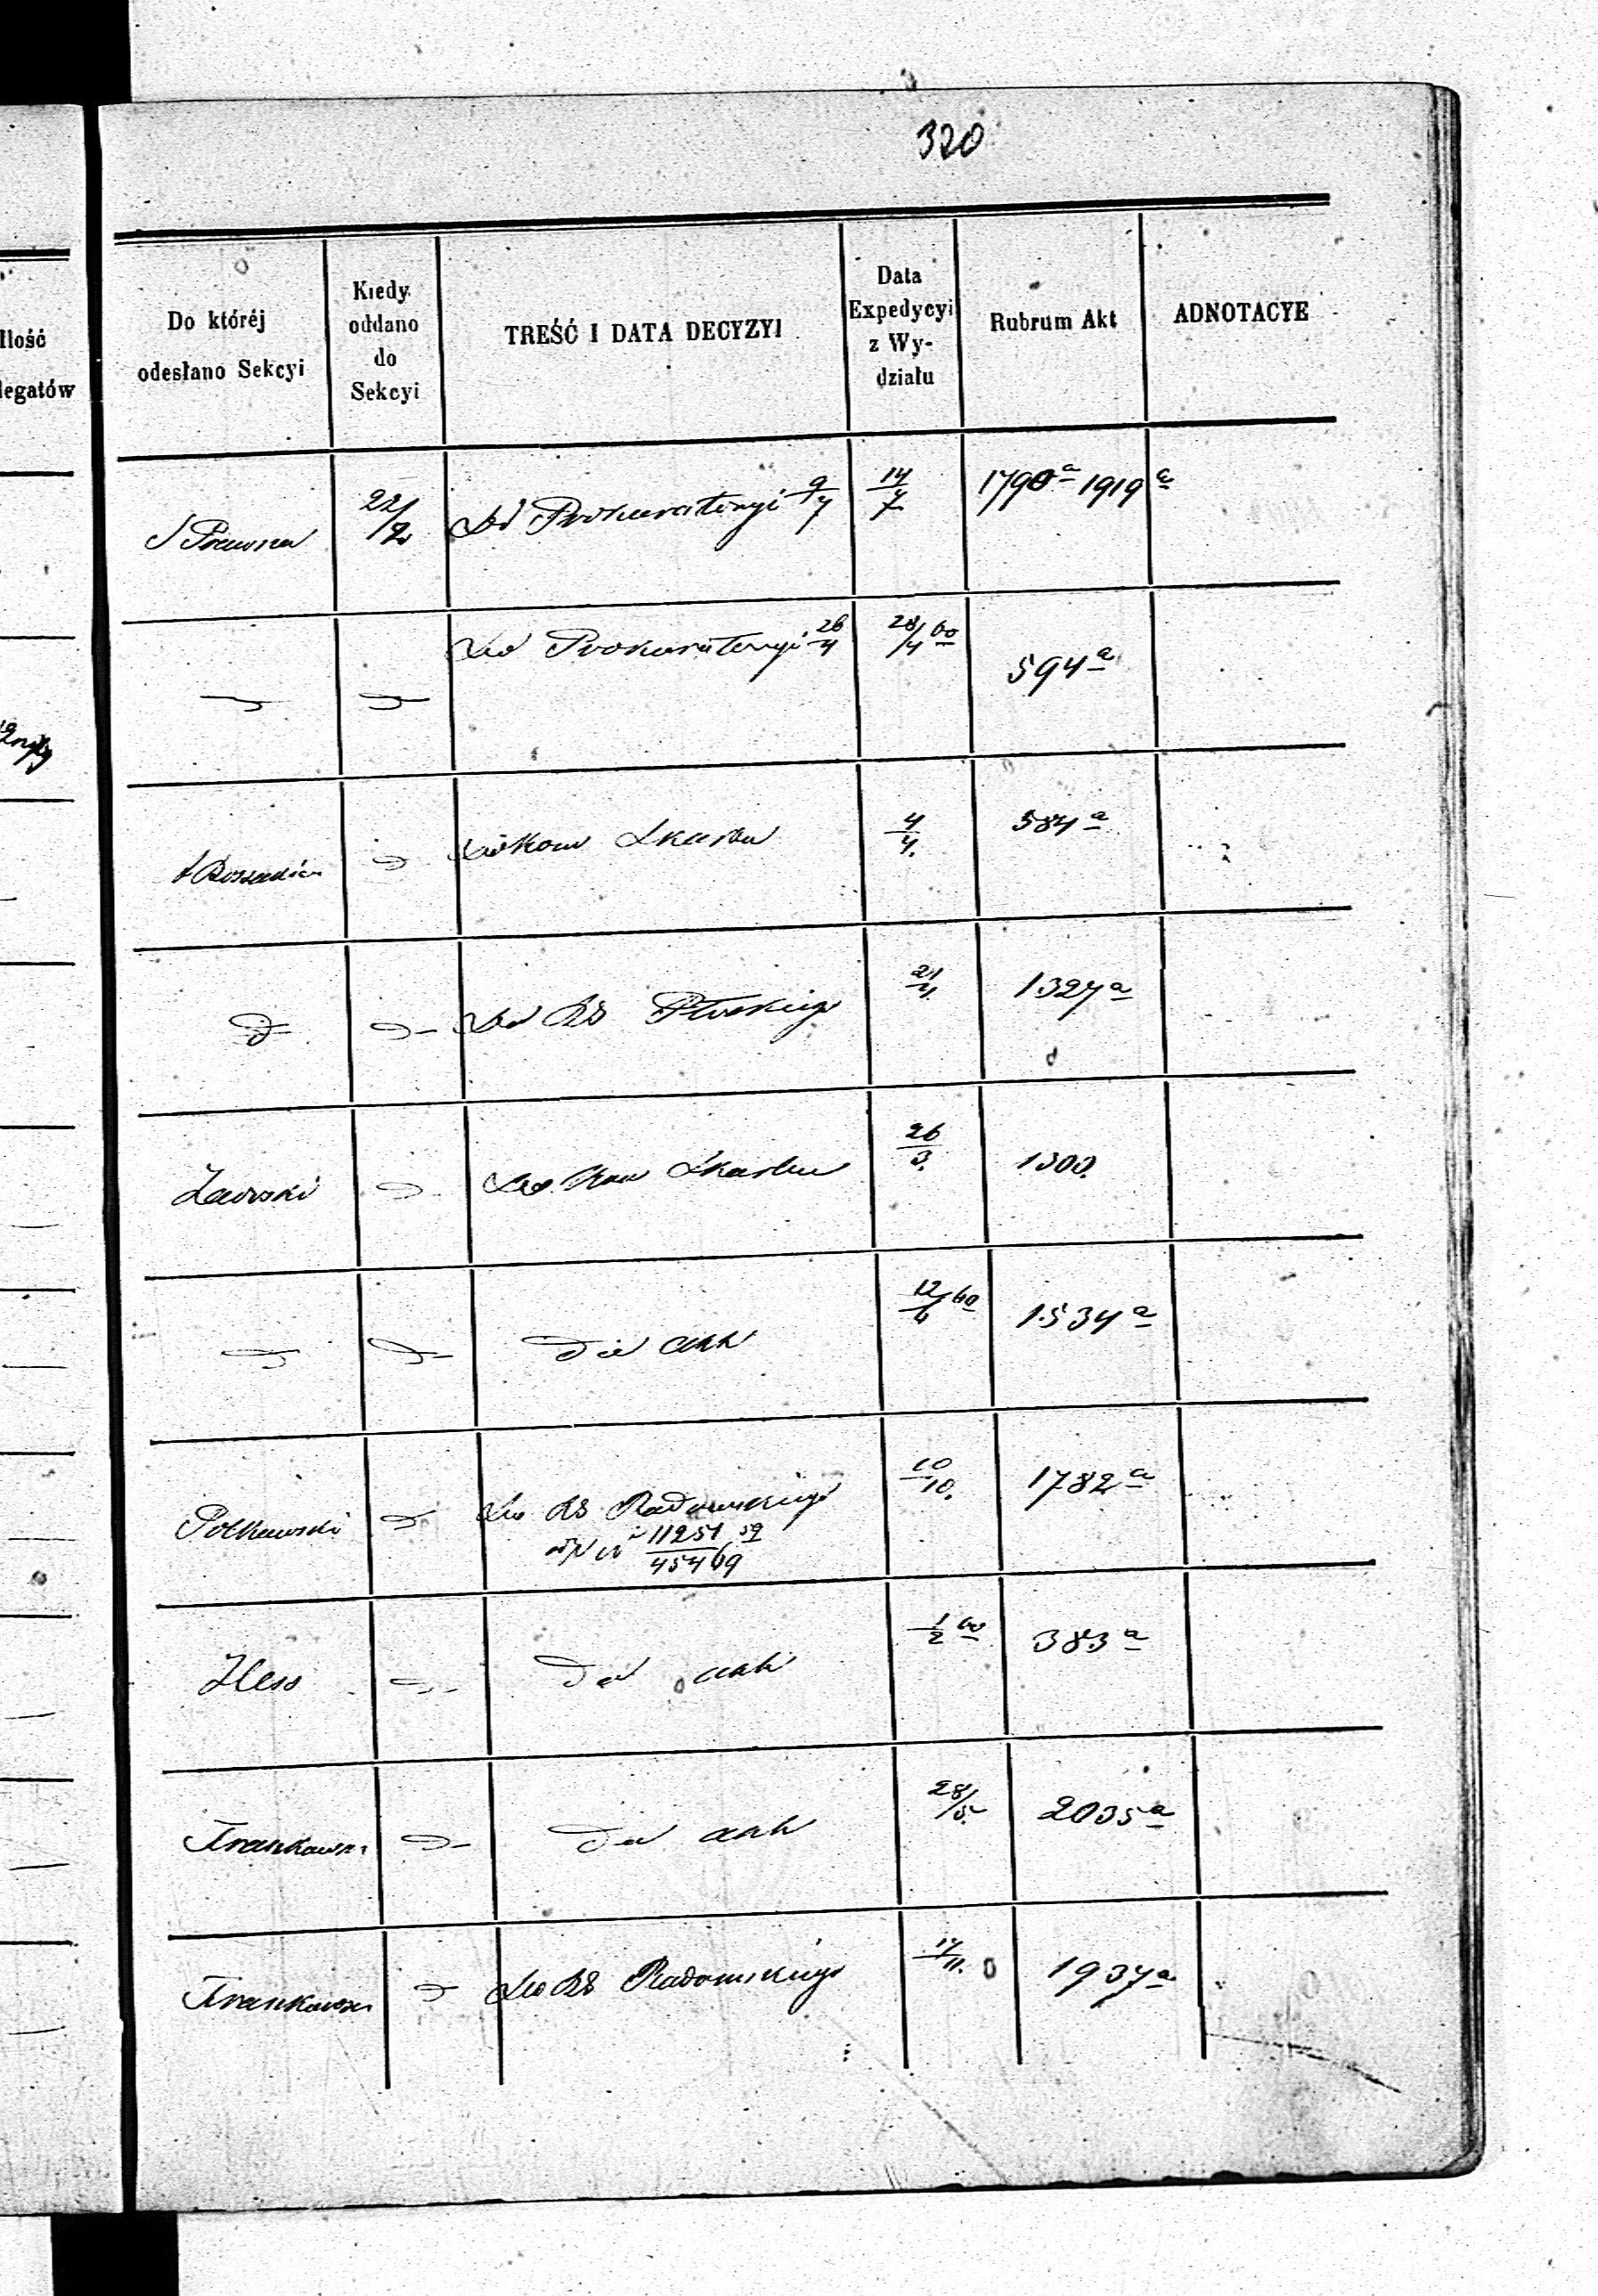 320
Ilość
legatów
Do któréj
odesłano Sekcyi
Kiedy
oddano
do
Sekcyi
TREŚĆ I DATA DECYZYI
Data
Expedycyi
z Wy-
działu
Rubrum Akt
ADNOTACYE
S Prawna 22/2 Do Prokuratoryi 9/7 14/7 1790 a 1919 a
Do Prokuratoryi 26/4 28/4 60 594 a
Do Kom Skarbu 4/4. 584 a
Do RG Płockiego 21/4. 1327 a
Do Kom Skarbu 26/3. 1300.
Do akt 12/6 60 1534 a
Do RG Radomskiego 10/10. 1782 a
11251 59
45469
Hess Do akt 1/2 60 383 a
Do akt 28/5. 2035 a
Do RG Radomskiego 14/11. 1937 a